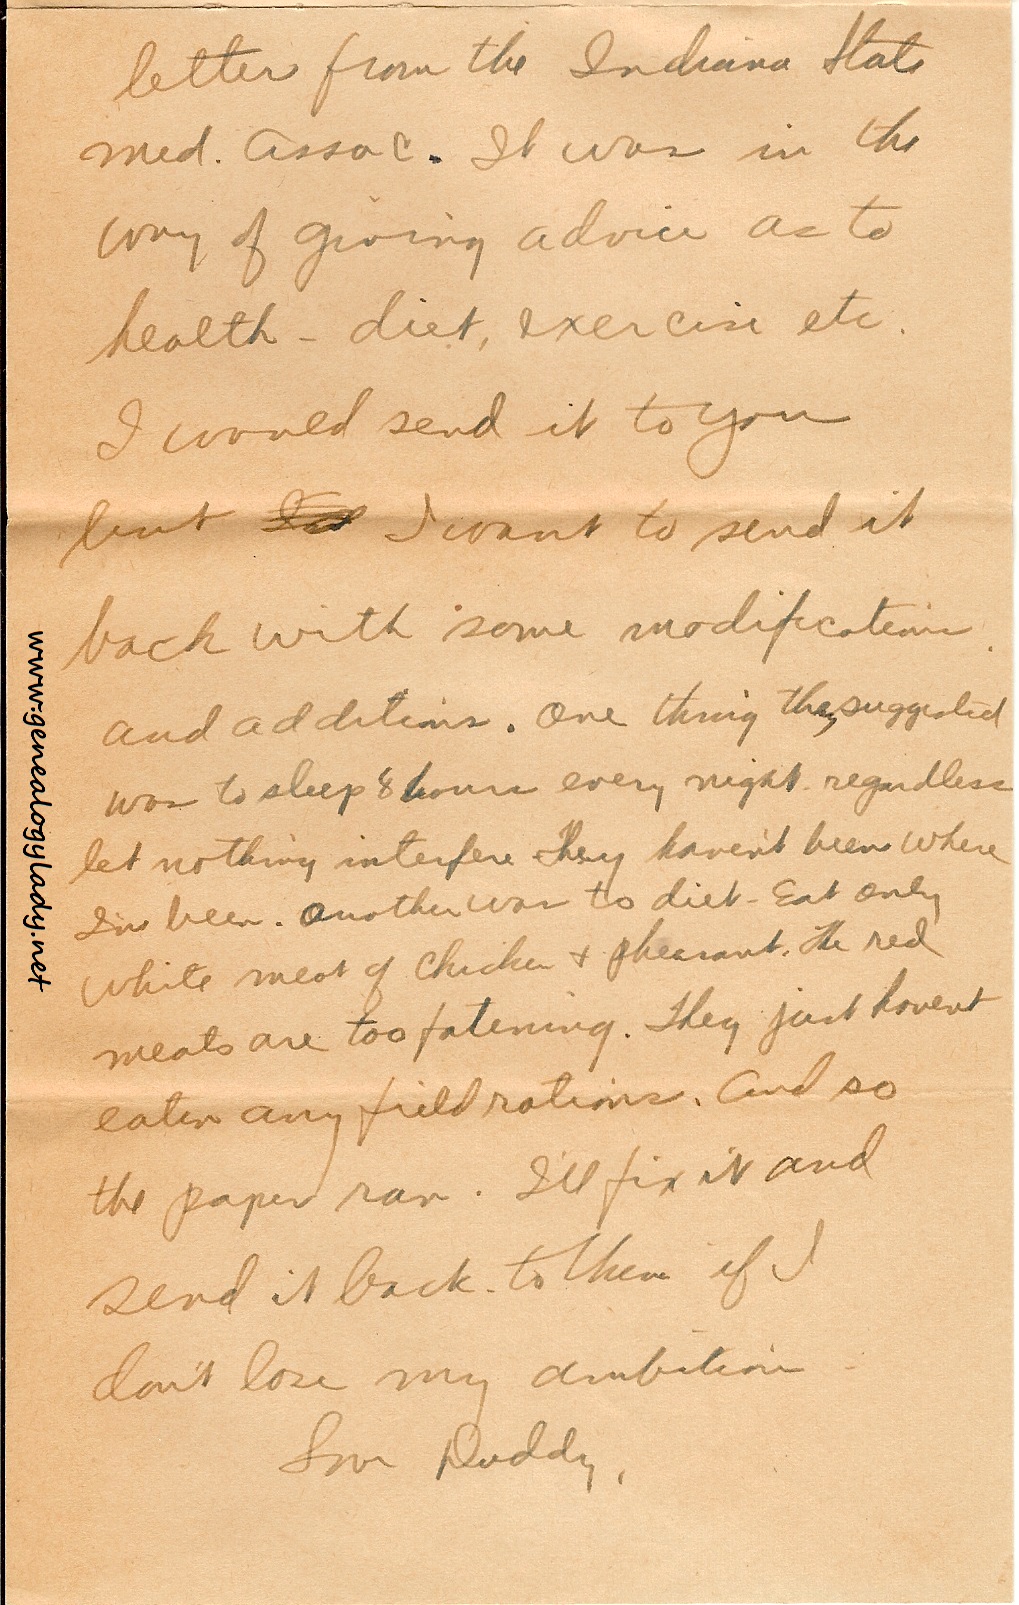 letter from the Indiana State
Med. Assoc. It was in the
way of giving advice as to
health - diet, exercise etc.
I would send it to you
but I want to send it
back with some modifications
and additions. One thing they suggested
was to sleep 8 hours every night regardless
let nothing interfere They haven't been where
I've been. Another was to diet - Eat only
white meat of chicken + pheasant. The red
meats are too fatening. They just havent
eaten any field rations. And so
the paper ran. I'll fix it and
send it back to them if I
don't lose my ambition -
Love Daddy,
www.genealogylady.net